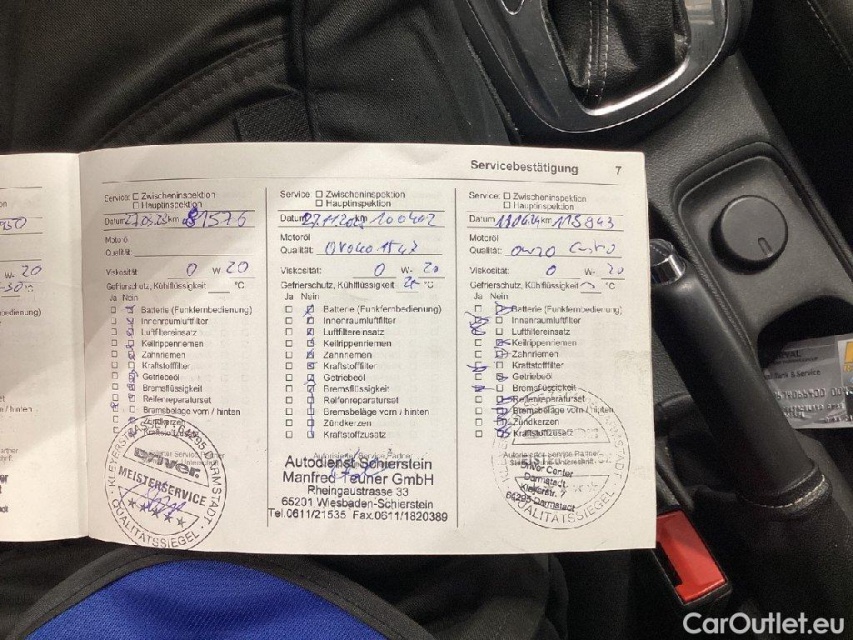 Servicebestätigung 7
Service: Zwischeninspektion
Hauptinspektion
Datum 27.09.23 km 81576
Motoröl
Qualität:
Viskosität: 0 W- 20
Gefrierschutz, Kühlflüssigkeit °C
Ja Nein
Batterie (Funkfernbedienung)
Innenraumluftfilter
Luftfiltereinsatz
Keilrippenriemen
Zahnriemen
Kraftstofffilter
Getriebeöl
Bremsflüssigkeit
Reifenreparaturset
Bremsbeläge vorn / hinten
Zündkerzen
Kraftstoffzusatz
KLEYERSTRASSE 7 · 64295 DARMSTADT
Driver
MEISTERSERVICE
QUALITÄTSSIEGEL
Service: Zwischeninspektion
Hauptinspektion
Datum km 100402
Motoröl
Qualität:
Viskosität: 0 W- 20
Gefrierschutz, Kühlflüssigkeit °C
Ja Nein
Batterie (Funkfernbedienung)
Innenraumluftfilter
Luftfiltereinsatz
Keilrippenriemen
Zahnriemen
Kraftstofffilter
Getriebeöl
Bremsflüssigkeit
Reifenreparaturset
Bremsbeläge vorn / hinten
Zündkerzen
Kraftstoffzusatz
Autodienst Schierstein
Manfred Teuner GmbH
Rheingaustrasse 33
65201 Wiesbaden-Schierstein
Tel.0611/21535 Fax.0611/1820389
Service: Zwischeninspektion
Hauptinspektion
Datum km 115943
Motoröl
Qualität:
Viskosität: 0 W- 20
Gefrierschutz, Kühlflüssigkeit °C
Ja Nein
Batterie (Funkfernbedienung)
Innenraumluftfilter
Luftfiltereinsatz
Keilrippenriemen
Zahnriemen
Kraftstofffilter
Getriebeöl
Bremsflüssigkeit
Reifenreparaturset
Bremsbeläge vorn / hinten
Zündkerzen
Kraftstoffzusatz
Autorisierter Service Partner
Driver Center
Darmstadt
Kleyerstr. 7
64295 Darmstadt
QUALITÄTSSIEGEL
W- 20
/ hinten
CarOutlet.eu